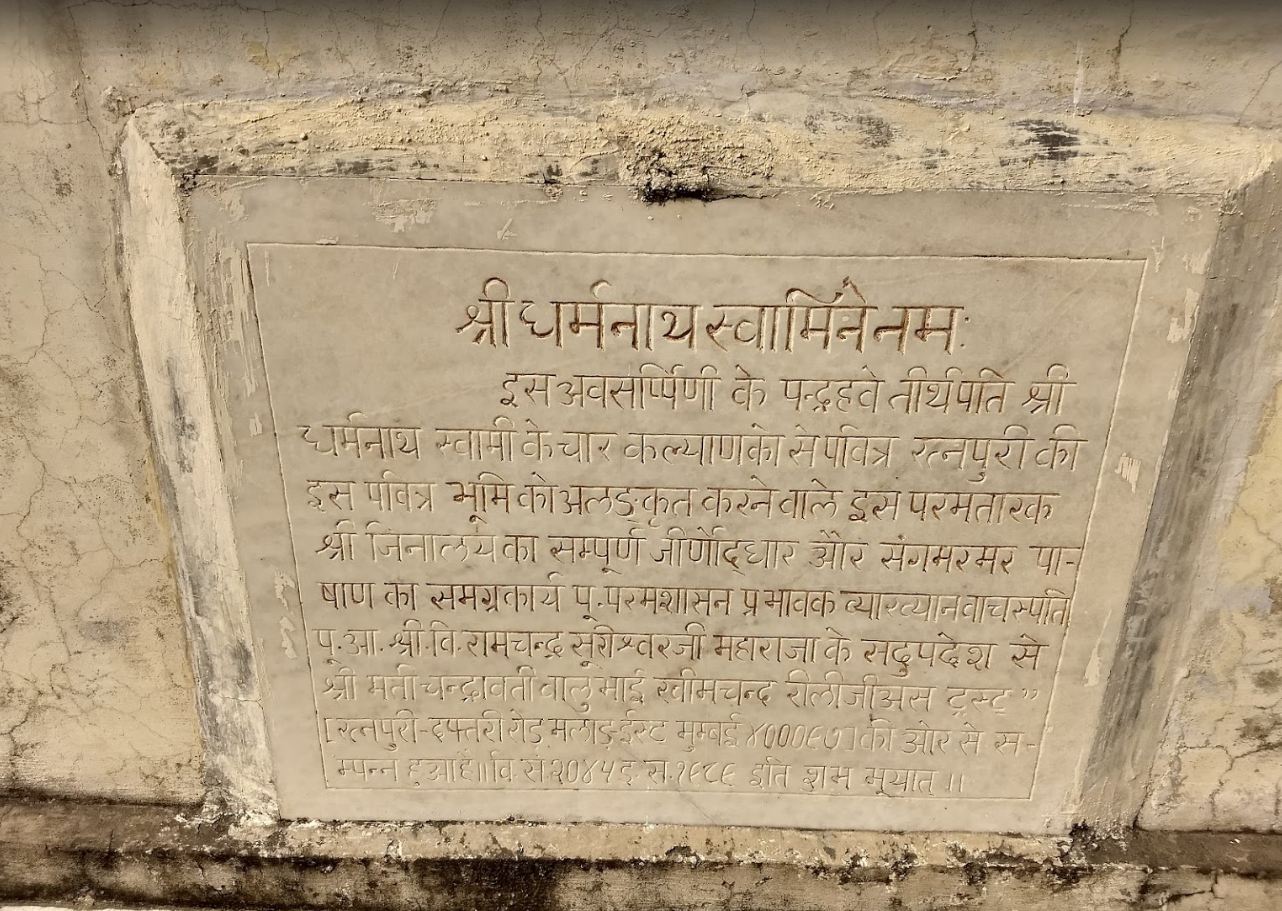 श्री धर्मनाथ स्वामिने नमः
इस अवसर्प्पिणी के पन्द्रहवे तीर्थपति श्री
धर्मनाथ स्वामी के चार कल्याणको से पवित्र रत्नपुरी की
इस पवित्र भूमि को अलङ्कृत करने वाले इस परमतारक
श्री जिनालय का सम्पूर्ण जीर्णोद्धार और संगमरमर पा-
षाण का समग्रकार्य पू. परमशासन प्रभावक व्याख्यान वाचस्पति
पू. आ. श्री. वि. रामचन्द्र सूरीश्वरजी महाराजा के सदुपदेश से
श्री मती चन्द्रावती वालुभाई खीमचन्द रीलीजीअस ट्रस्ट"
[रत्नपुरी-दफ्तरी रोड़ मलाड़-ईस्ट मुम्बई ४०००९७] की ओर से स-
म्पन्न हुआ है॥ वि. सं. २०४५ इ. स. १९८९ इति शुभ भूयात ॥